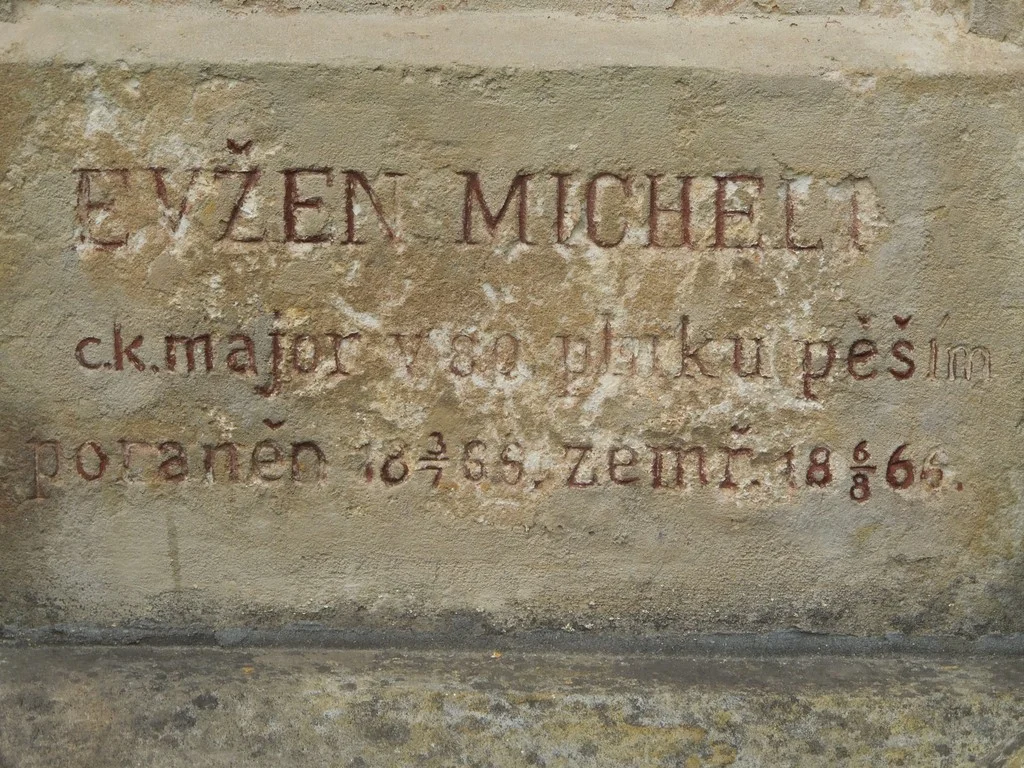 EVŽEN MICHELI
c.k. major v 80. pluku pěším
poraněn 18 3/7 66. zemř. 18 6/8 66.